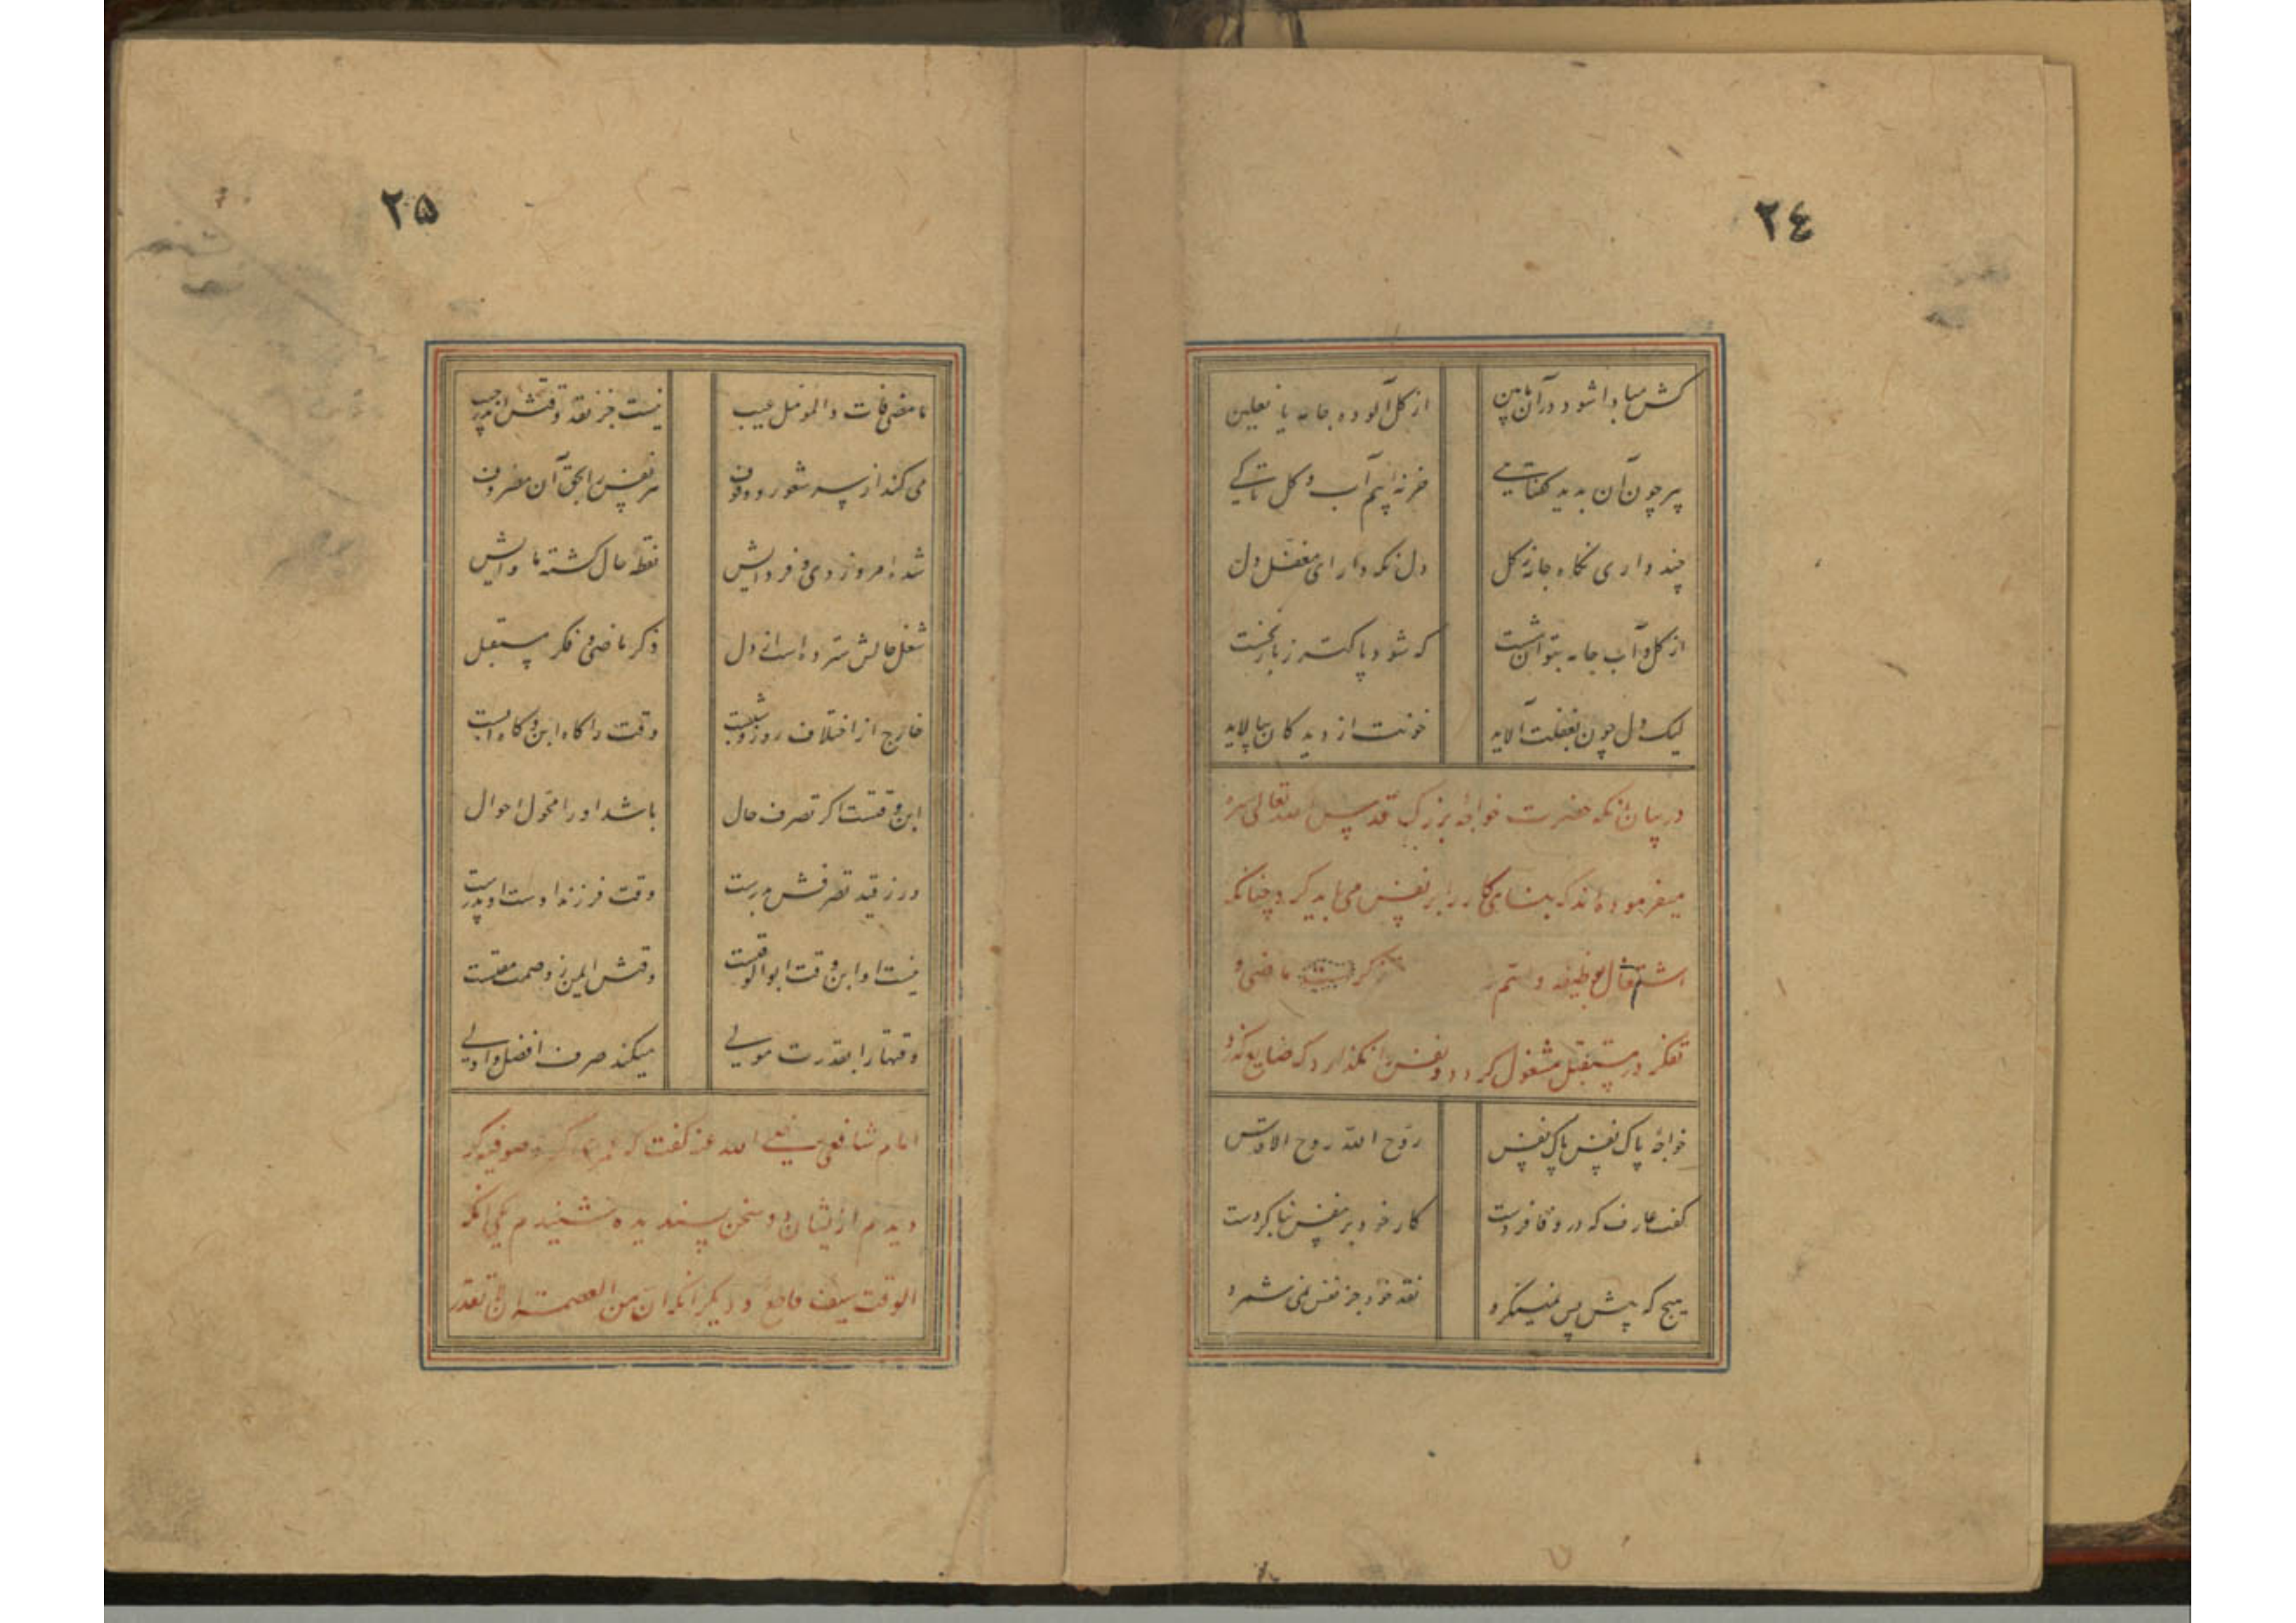 ٢٤
کش مبادا شود در آن مابین
از گل آلوده جامه یا نعلین
پیر چون آن بدید گفتا هی
خر نه‌ایم آب و گل تا کی
چند داری نگاه جامه ز گل
دل نگه دار ای مغفل دل
از گل و آب جامه بتوان شست
که شود پاکتر ز بار نخست
لیک دل چون بغفلت آلاید
خونت از دیدگان بپالاید
در بیان آنکه حضرت خواجه بزرگ قدس الله تعالی سره
میفرموده‌اند که بنا می کار را بر نفس می‌باید کرد چنانکه
اشتغال بوظیفه ذکر ماضی و
تفکر در مستقبل مشغول گرداند و نفس را نگذارد که ضایع گذرد
خواجه پاک نفس پاک نفس
روح الله روح الاقدس
گفت عارف که در وفا فردست
کار خود بر نفس بنا کردست
هیچ که پیش و پس نمینگرد
نقد خود جز نفس نمی شمرد
٢٥
ما مضی فات والمؤمل غیب
نیست جز نقد وقتش اندر جیب
می کند از سر شعور و وقوف
هر نفس را بحق آن مصروف
شده امروز دی و فردایش
نقطه حال گشته ماوایش
شغل حالش سترده است از دل
ذکر ماضی و فکر مستقبل
خارج از اختلاف روز و شبست
وقت را گاه ابن و گاه ابست
ابن وقتست اگر تصرف حال
باشد او را محول احوال
ور ز قید تصرفش برست
وقت فرزند اوست او پدرست
نیست او ابن وقت ابو الوقتست
وقتش ایمن ز وصمت مقتست
وقتها را بقدرت مولی
میکند صرف افضل و اولی
امام شافعی رضی الله عنه گفت که صوفیه کر
دیدم از ایشان دو سخن پسندیده شنیدم یکی آنکه
الوقت سیف قاطع و دیگر آنکه ان من العصمة ان لا تقدر